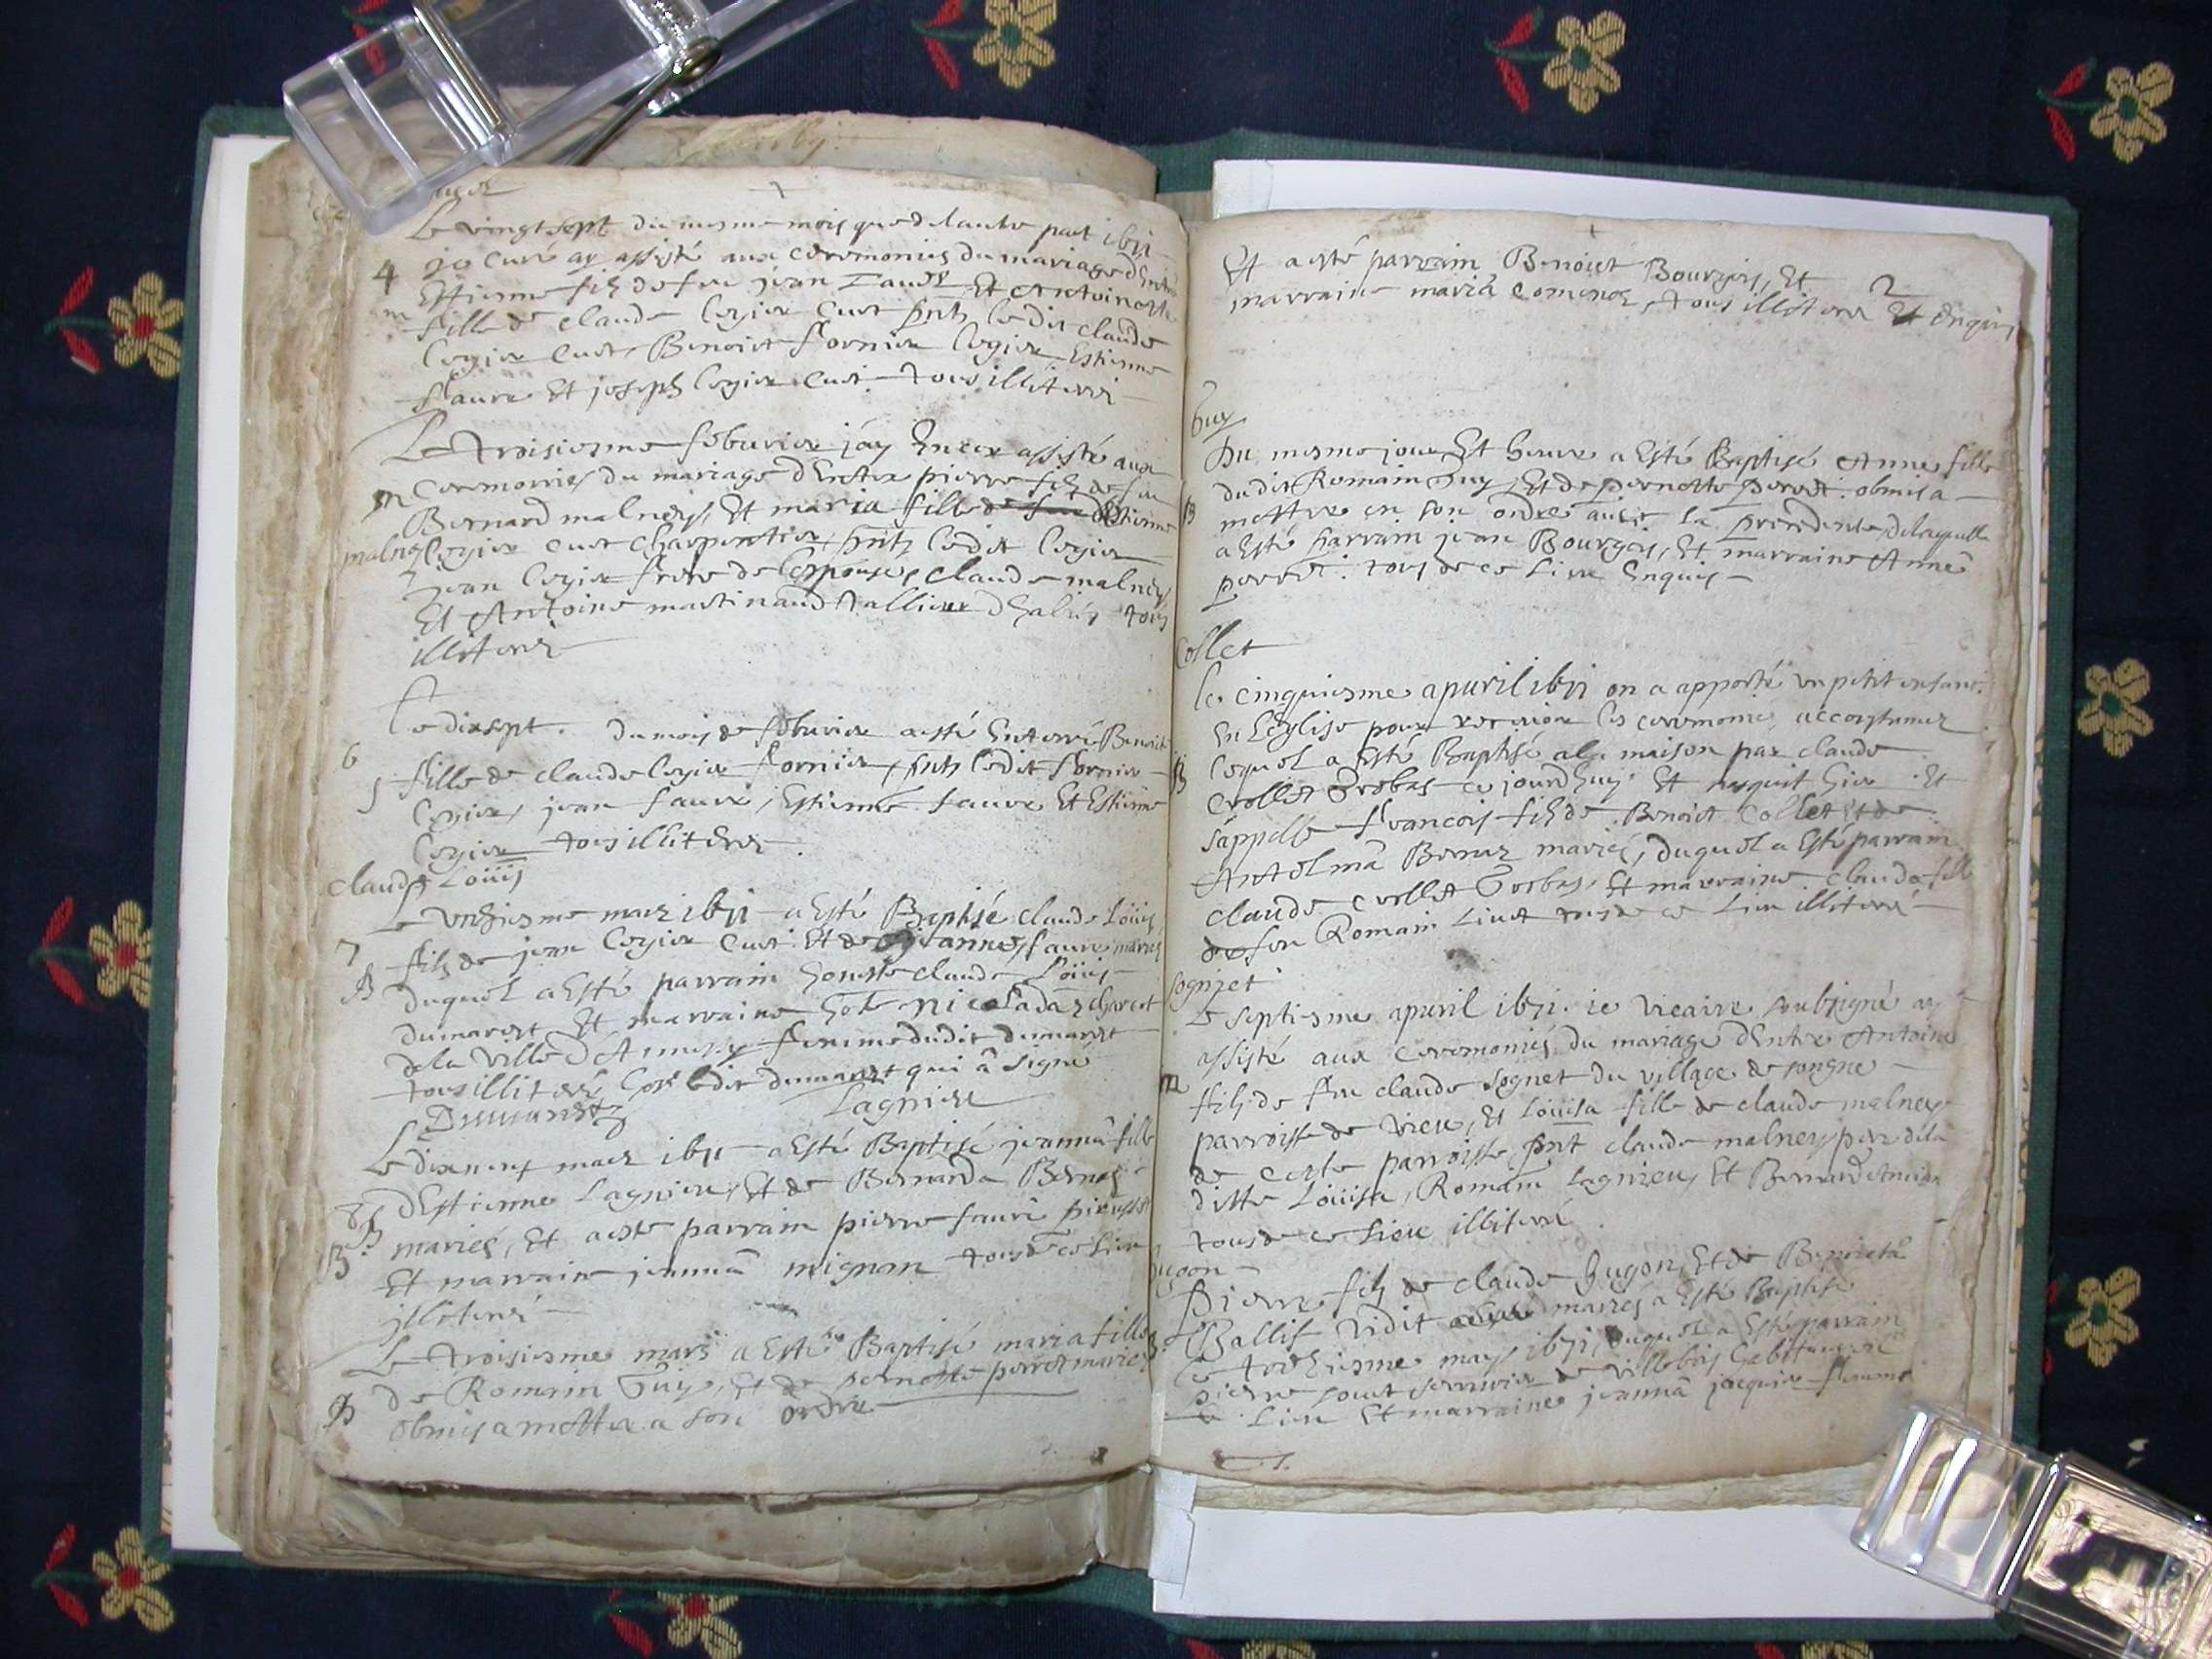 Le vingt sept du mesme mois que de lautre part 1671
4 Je curé ay assisté aux ceremonies du mariage d'Entre
m Estienne filz de feu jean Faure Et Antoinette
fille de claude Cozier Cuet pntz ledit claude
Cozier Cuet, Benoist fornier Cozier, Estienne
faure Et joseph Cozier Cuet tous illiterez
Le troisiesme feburier j'ay Encor assisté aux
m ceremonies du mariage d'Entre pierre filz de feu
Bernard malney, Et maria fille de feu Estienne
malney Cozier Cuet charpentier, pntz ledit Cozier
jean Cozier frere de l'Espouse, claude malney
Et Antoine martinand tallieur d'habitz tous
illiterez
Le dixsept. du mois de feburier a esté Enterré Benoiste
6 fille de claude Cozier fornier, pntz ledit fornier
S Cozier, jean faure, Estienne faure Et Estienne
Cozier tous illiterez.
claude Loüis
Le unziesme mars 1671 a Esté Baptisé claude Loüis
7 filz de jean Cozier Cuet Et de Jeanne faure mariez
B duquel a Esté parrain honeste claude Loüis
dumarest Et marraine hote Nicolada charcot
de la ville d'Annessy femme dudit dumarest
tous illiterez hors ledit dumarest qui a signé
Dumarest Lagnieu
Le dixneuf mars 1671 a Esté Baptisé jeanna fille
8 B d'Estienne Lagnieu, Et de Bernarda Bernaz
B. mariés, Et a esté parrain pierre faure
Et marraine jeanna mignon tous de ce Lieu
illiterés
Le troisiesme mars a Esté Baptisé maria fille
B de Romain Guy, Et de pernette perret mariez
obmis a mettre a son ordre
Et a esté parrain Benoist Bourgois, Et 2
marraine maria Comenoz, tous illiterez Et Enquis
Guy
Du mesme jour Et heure a Esté Baptisé Anne fille
dudit Romain Guy, Et de pernette perret. obmis a
B mettre en son ordre auec la precedente, de laquelle
a Esté parrain jean Bourgois, Et marraine Anne
perret. tous de ce Lieu Enquis
Collet
Le cinquiesme apuril 1671 on a apporté un petit enfant
En L'Eglise pour receuoir les ceremonies accoustumez
B lequel a Esté Baptisé a la maison par claude
Crollet Trebas ce jourd'huy Et nasquit hier Et
s'appelle francois filz de Benoist Collet Et de
Antelma Bernaz mariés, duquel a Esté parrain
claude Crollet Trebas, Et marraine claude fille
de feu Romain Liuet tous de ce Lieu illiterés
sognjet
Le septiesme apuril 1671. je vicaire soubsigné ay
assisté aux ceremonies du mariage d'Entre Antoine
m filz de feu claude sognet du village de songne
parroisse de vieu, Et Loüisa fille de claude malney
de ceste parroisse, pnt claude malney pere de la
ditte Loüisa, Romain Lagnieu, Et Bernard
tous de ce Lieu illiterés
hugon
Pierre filz de claude hugon, Et de Benoieta
Ballif vidit mariés a Esté Baptisé
B. Le treiziesme may 1671, duquel a Esté parrain
pierre serrurier de villebois habitant
Lieu Et marraine jeanna jacquier femme